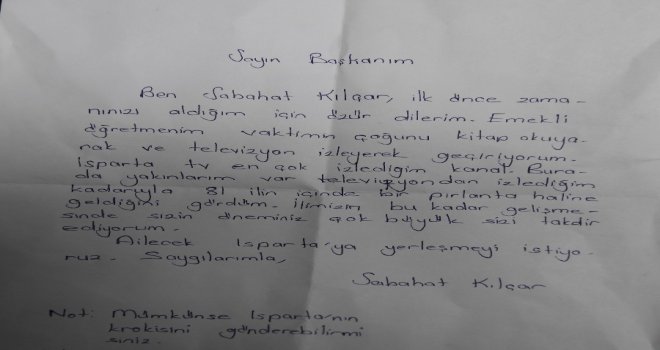 Sayın Başkanım
Ben Sabahat Kılçar, ilk önce zama-
nınızı aldığım için özür dilerim. Emekli
öğretmenim vaktimin çoğunu kitap okuya-
rak ve televizyon izleyerek geçiriyorum.
Isparta tv en çok izlediğim kanal. Bura-
da yakınlarım var televizyondan izlediğim
kadarıyla 81 ilin içinde bir pırlanta haline
geldiğini gördüm. İlimizin bu kadar gelişme-
sinde sizin öneminiz çok büyük sizi takdir
ediyorum.
Ailecek Isparta'ya yerleşmeyi istiyo-
ruz. Saygılarımla,
Sabahat Kılçar
Not: Mümkünse Isparta'nın
krokisini gönderebilirmi
siniz.